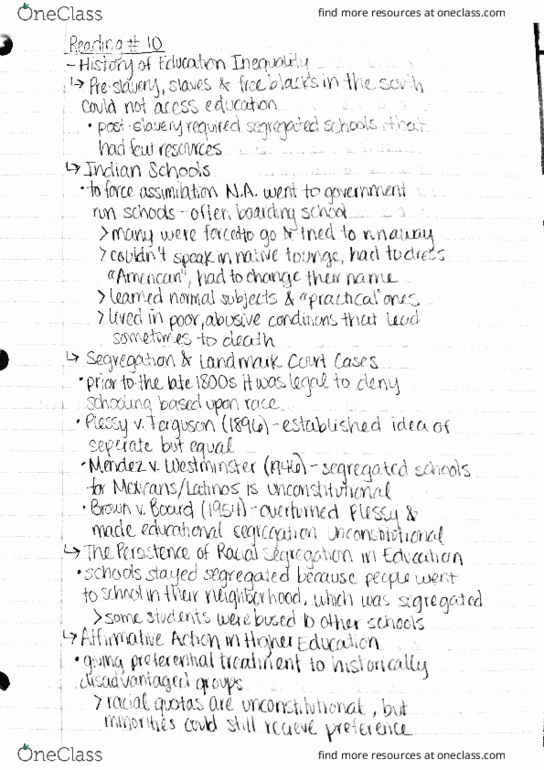 OneClass
find more resources at oneclass.com
Reading # 10
- History of Education Inequality
↳ Pre-slavery, slaves & free blacks in the south
could not acess education
• post-slavery required segregated schools that
had few resources
↳ Indian Schools
• to force assimilation N.A. went to government
run schools - often boarding school
> many were forced to go & tried to runaway
> couldn't speak in native tounge, had to dress
"American", had to change their name
> learned normal subjects & "practical" ones
> lived in poor, abusive conditions that lead
sometimes to death
↳ Segregation & Landmark Court Cases
• prior to the late 1800s it was legal to deny
schooling based upon race
• Plessy v. Ferguson (1896) - established idea of
seperate but equal
• Mendez v. Westminster (1946) - segregated schools
for Mexicans/Latinos is unconstitutional
• Brown v. Board (1954) - overturned Plessy &
made educational segregation unconstitutional
↳ The Persistence of Racial Segregation in Education
• schools stayed segregated because people went
to school in their neighborhood, which was sigregated
> some students were bused to other schools
↳ Affirmative Action in Higher Education
• giving preferential treatment to historically
disadvantaged groups
> racial quotas are unconstitutional, but
minorities could still recieve preference
OneClass
find more resources at oneclass.com